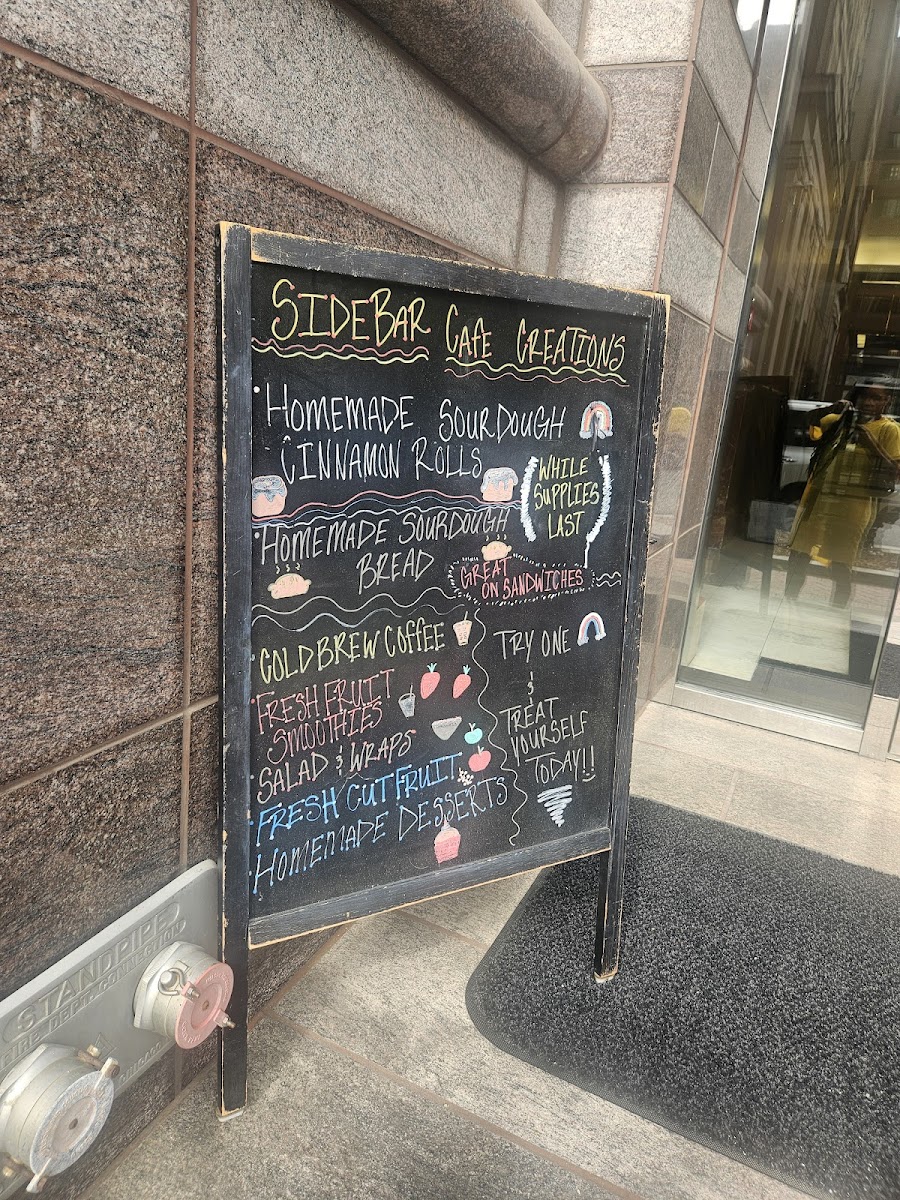 SIDEBAR CAFE CREATIONS
HOMEMADE SOURDOUGH
CINNAMON ROLLS
(WHILE
SUPPLIES
LAST)
HOMEMADE SOURDOUGH
BREAD
GREAT
ON SANDWICHES
COLD BREW COFFEE
FRESH FRUIT
SMOOTHIES
SALAD & WRAPS
FRESH CUT FRUIT
HOMEMADE DESSERTS
TRY ONE
&
TREAT
YOURSELF
TODAY!!
STANDPIPE
FIRE DEPT. CONNECTION